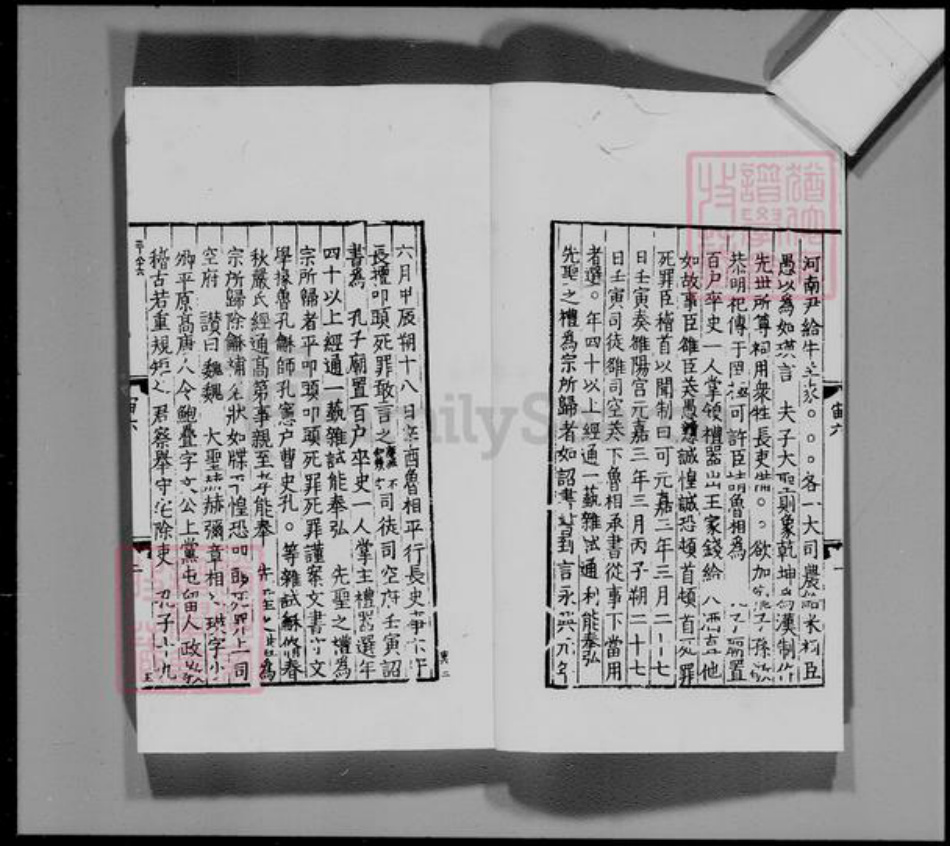 河南尹給牛羊豕。。。各一大司農給米祠臣
愚以為如瑛言 夫子大聖則象乾坤為漢制作
先世所尊祠用眾牲長吏備。。欲加寵子孫
恭明祀傳于罔極可許臣請魯相為 孔子廟置
百戶卒史一人掌領禮器出王家錢給犬酒直他
如故事臣雄臣戒愚戇誠惶誠恐頓首頓首死罪
死罪臣稽首以聞制曰可元嘉三年三月二十七
日壬寅奏雒陽宮元嘉三年三月丙子朔二十七
日壬寅司徒雄司空戒下魯相承書從事下當用
者選。年四十以上經通一藝雜試通利能奉弘
先聖之禮為宗所歸者如詔書書到言永興元年
六月甲辰朔十八日辛酉魯相平行長史事卞守
長擅叩頭死罪敢言之 司徒司空府壬寅詔
書為 孔子廟置百戶卒史一人掌主禮器選年
四十以上經通一藝雜試能奉弘 先聖之禮為
宗所歸者平叩頭叩頭死罪死罪謹案文書守文
學掾魯孔龢師孔憲戶曹史孔。等雜試龢修春
秋嚴氏經通高第事親至孝能奉 先聖之禮為
宗所歸除龢補名狀如牒平惶恐叩頭死罪上司
空府 讚曰巍巍 大聖赫赫彌章相乙瑛字小
卿平原高唐人令鮑疊字文公上黨屯留人政
稽古若重規矩乙君察舉守宅除吏 孔子十九
寅六